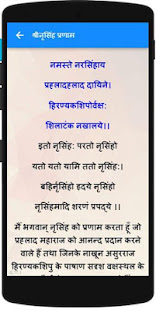 श्रीनृसिंह प्रणाम
नमस्ते नरसिंहाय
प्रहलादहलाद दायिने।
हिरण्यकशिपोर्वक्षः
शिलाटंक नखालये।।
इतो नृसिंहः परतो नृसिंहो
यतो यतो यामि ततो नृसिंहः।
बहिर्नृसिंहो हृदये नृसिंहो
नृसिंहमादि शरणं प्रपद्ये।।
मैं भगवान् नृसिंह को प्रणाम करता हूँ जो
प्रहलाद महाराज को आनन्द प्रदान करने
वाले हैं तथा जिनके नाखून असुरराज
हिरण्यकशिपु के पाषाण सदृश वक्षस्थल के